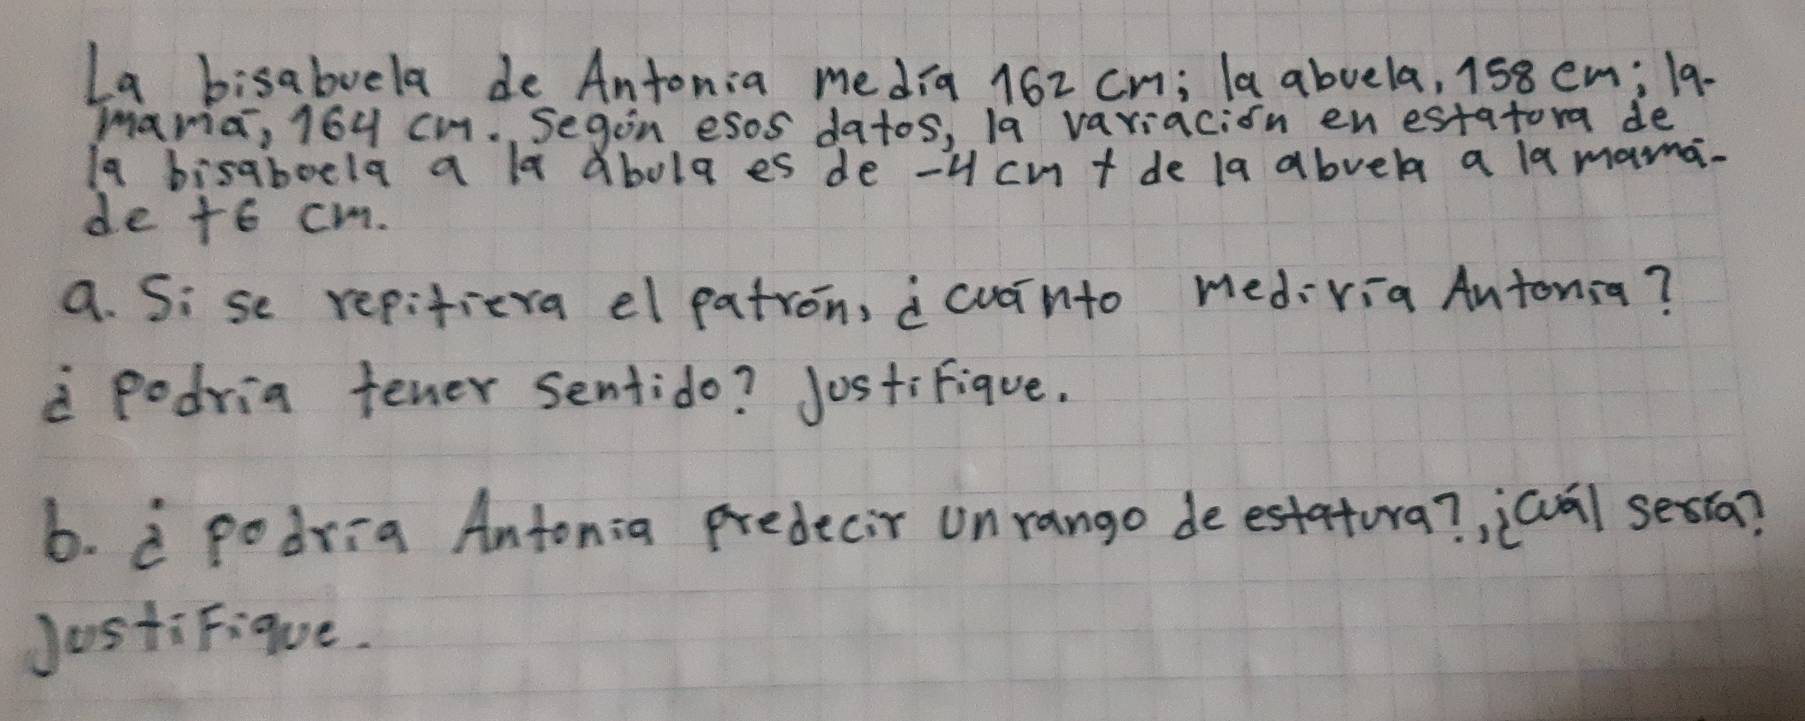 La bisabuela de Antonia media 162 cm; la abuela, 158 cm; la
mamá, 164 cm. Segón esos datos, la variación en estatora de
la bisaboela a la abula es de -4 cm + de la abuela a la mamá
de +6 cm.
a. Si se repitiera el patrón, ¿cuánto mediría Antonia?
¿Podria tener sentido? Justifique.
b. ¿podría Antonia predecir un rango de estatura?, ¿Cuál sería?
Justifique.